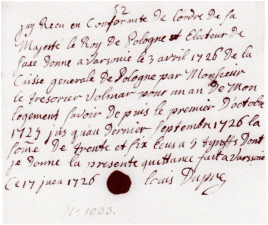 52
jay Receu en Conformité de l'ordre de sa
Majesté le Roy de Pologne et Electeur de
saxe donne a Varsovie le 3 avril 1726 de la
Caisse generale de Pologne par Monsieur
le tresorier Volmar pour un an de Mon
logement savoir depuis le premier d'octobre
1725 jusquau dernier septembre 1726 la
some de trente et six ecus a 8 tynffs dont
je donne la presente quittance fait a Varsovie
Ce 17 juen 1726 Louis Dupre
No: 1033.